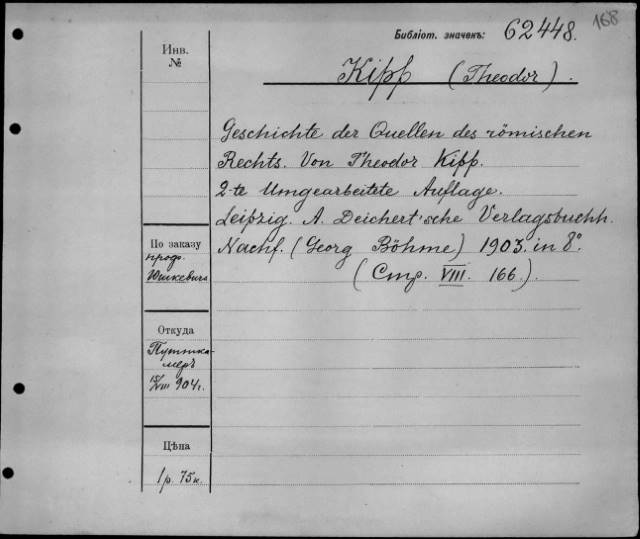 168
Библіот. значекъ: 62448.
Инв.
№
Kipp (Theodor).
Geschichte der Quellen des römischen
Rechts. Von Theodor Kipp.
2-te Umgearbeitete Auflage.
Leipzig. A. Deichert'sche Verlagsbuchh.
Nachf. (Georg Böhme) 1903. in 8°.
(Стр. VIII. 166.).
По заказу
проф.
Юшкевича
Откуда
Путтка-
меръ
904 г.
Цѣна
1 р. 75 к.